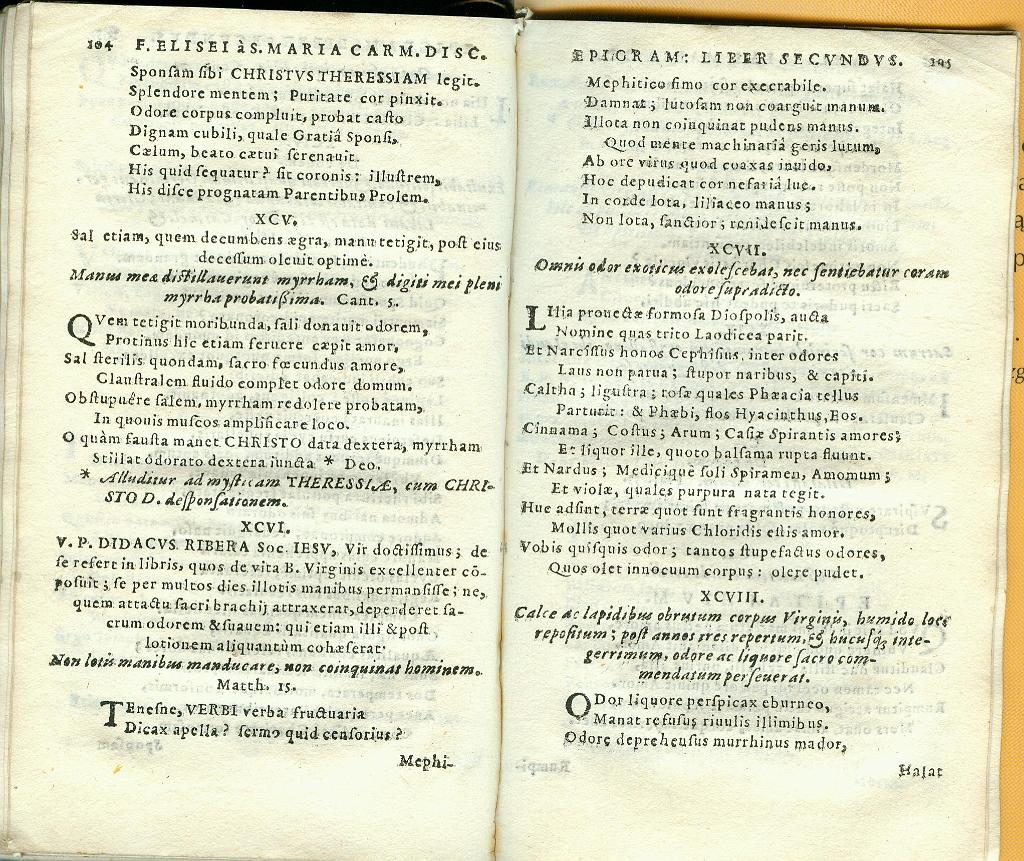 104 F. ELISEI à S. MARIA CARM. DISC.
Sponſam ſibi CHRISTVS THERESSIAM legit.
Splendore mentem; Puritate cor pinxit.
Odore corpus compluit, probat caſto
Dignam cubili, quale Gratiâ Sponſi,
Cælum, beato cætui ſerenauit.
His quid ſequatur? ſit coronis: illuſtrem,
His diſce prognatam Parentibus Prolem.
XCV.
Sal etiam, quem decumbens ægra, manu tetigit, poſt eius
deceſſum oleuit optimè.
Manus meæ diſtillauerunt myrrham, & digiti mei pleni
myrrha probatiſſima. Cant. 5.
QVem tetigit moribunda, ſali donauit odorem,
Protinus hic etiam feruere cæpit amor,
Sal ſterilis quondam, ſacro fœcundus amore,
Clauſtralem fluido complet odore domum.
Obſtupuêre ſalem, myrrham redolere probatam,
In quouis muſcos amplificare loco.
O quàm fauſta manet CHRISTO data dextera, myrrham
Stillat odorato dextera iuncta * Deo.
* Alluditur ad myſticam THERESSIÆ, cum CHRI-
STO D. deſponſationem.
XCVI.
V. P. DIDACVS RIBERA Soc. IESV, Vir doctiſſimus; de
ſe refert in libris, quos de vita B. Virginis excellenter cō-
poſuit; ſe per multos dies illotis manibus permanſiſſe; ne,
quem attactu ſacri brachij attraxerat, deperderet ſa-
crum odorem & ſuauem: qui etiam illi & poſt
lotionem aliquantùm cohæſerat.
Non lotis manibus manducare, non coinquinat hominem.
Matth. 15.
TEneſne, VERBI verba fructuaria
Dicax apella? ſermo quid cenſorius?
Mephi-
EPIGRAM: LIBER SECVNDVS. 105
Mephitico fimo cor execrabile.
Damnat; lutoſam non coarguit manum.
Illota non coinquinat pudens manus.
Quod mente machinariâ geris lutum,
Ab ore virus quod coaxas inuido,
Hoc depudicat cor nefariâ lue.
In corde lota, liliaceo manus;
Non lota, ſanctior; renideſcit manus.
XCVII.
Omnis odor exoticus exoleſcebat, nec ſentiebatur coram
odore ſupradicto.
LIlia prouectæ formoſa Dioſpolis, aucta
Nomine quas trito Laodicea parit.
Et Narciſſus honos Cephiſius, inter odores
Laus non parua; ſtupor naribus, & capiti.
Caltha; liguſtra; roſæ quales Phæacia tellus
Parturit: & Phæbi, flos Hyacinthus, Eos.
Cinnama; Coſtus; Arum; Caſiæ Spirantis amores;
Et liquor ille, quoto balſama rupta fluunt.
Et Nardus; Medicique ſoli Spiramen, Amomum;
Et violæ, quales purpura nata tegit.
Hue adſint, terræ quot ſunt fragrantis honores,
Mollis quot varius Chloridis eſtis amor.
Vobis quiſquis odor; tantos ſtupefactus odores,
Quos olet innocuum corpus: olere pudet.
XCVIII.
Calce ac lapidibus obrutum corpus Virginis, humido loco
repoſitum; poſt annos tres repertum, & hucuſq; inte-
gerrimum, odore ac liquore ſacro com-
mendatum perſeuerat.
ODor liquore perſpicax eburneo,
Manat refuſus riuulis illimibus.
Odore deprehenſus murrhinus mador,
Halat